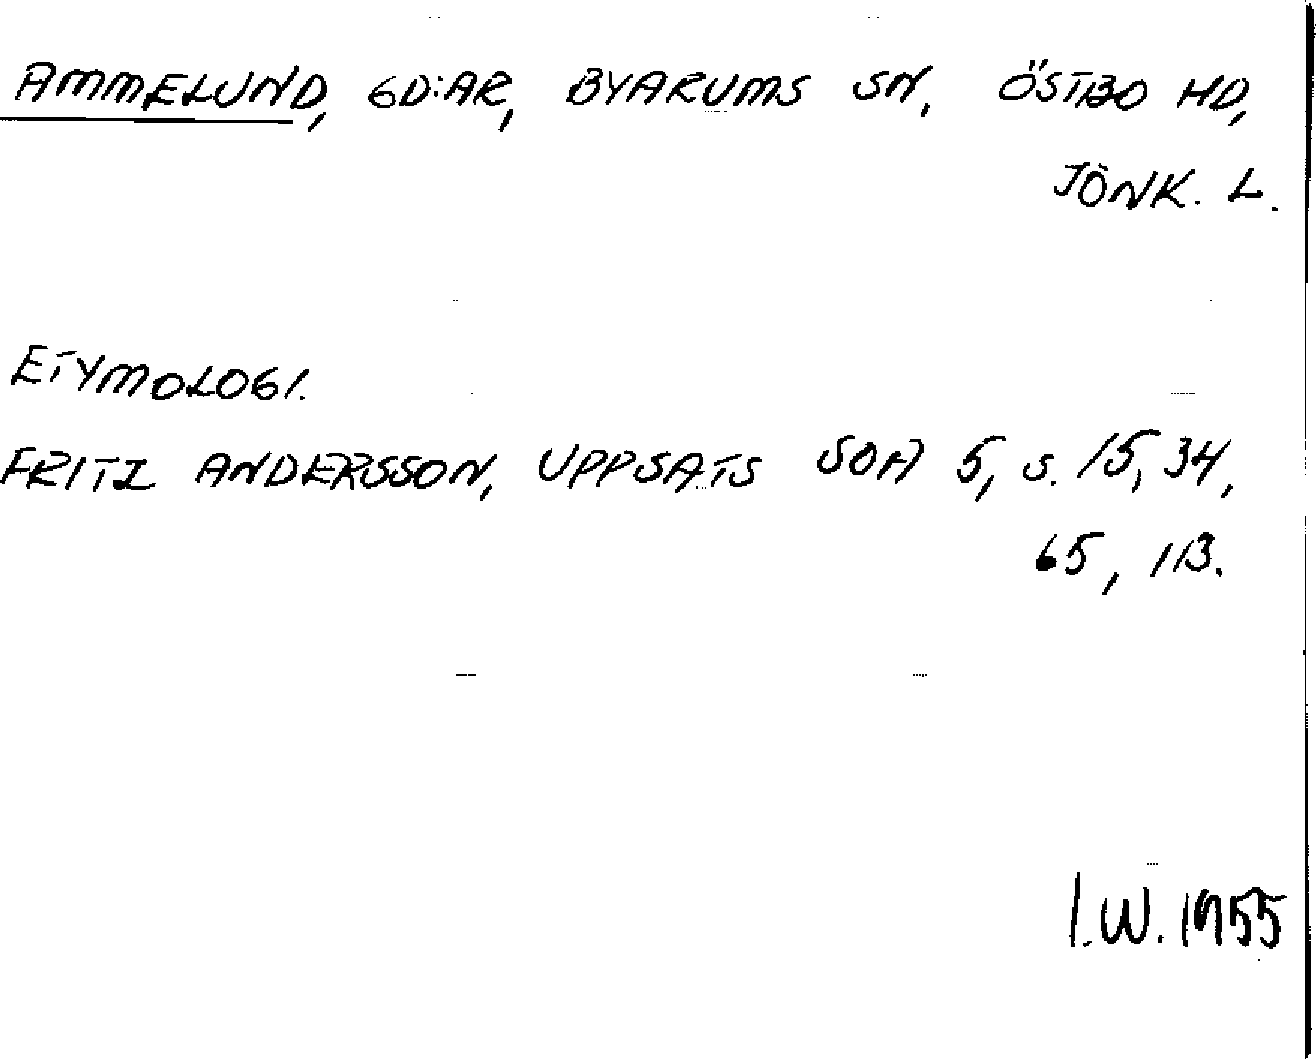 AMMELUND, GD:AR, BYARUMS SN, ÖSTBO HD,
JÖNK. L.
ETYMOLOGI.
FRITZ ANDERSSON, UPPSATS SOA 5, S. 15, 34,
65, 113.
I.W. 1955